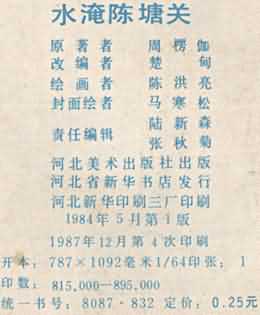 水淹陈塘关
原著者 周楞伽
改编者 楚甸
绘画者 陈洪亮
封面绘者 马寒松
责任编辑 陆新森
张秋菊
河北美术出版社出版
河北省新华书店发行
河北新华印刷三厂印刷
1984年5月第1版
1987年12月第4次印刷
开本：787×1092毫米1/64印张：1
印数：815,000—895,000
统一书号：8087·832 定价：0.25元